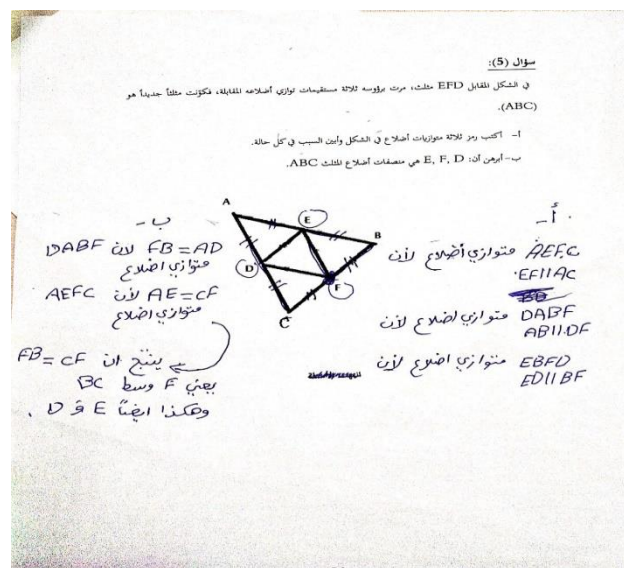 سؤال (5):
في الشكل المقابل EFD مثلث، مرت برؤوسه ثلاثة مستقيمات توازي أضلاعه المقابلة، فكوّنت مثلثاً جديداً هو
(ABC).
أ- اكتب رمز ثلاثة متوازيات أضلاع في الشكل وأبين السبب في كل حالة.
ب- أبرهن أن: E, F, D هي منصفات أضلاع المثلث ABC.
A
E
B
D
F
C
أ-
AEFC متوازي أضلاع لأن
EF//AC.
DABF متوازي اضلاع لأن
AB//DF
EBFD متوازي اضلاع لأن
ED//BF
ب-
FB = AD لأن DABF
متوازي اضلاع
AE = CF لأن AEFC
متوازي اضلاع
ينتج ان FB = CF
يعني F وسط BC
وهكذا ايضاً E و D.